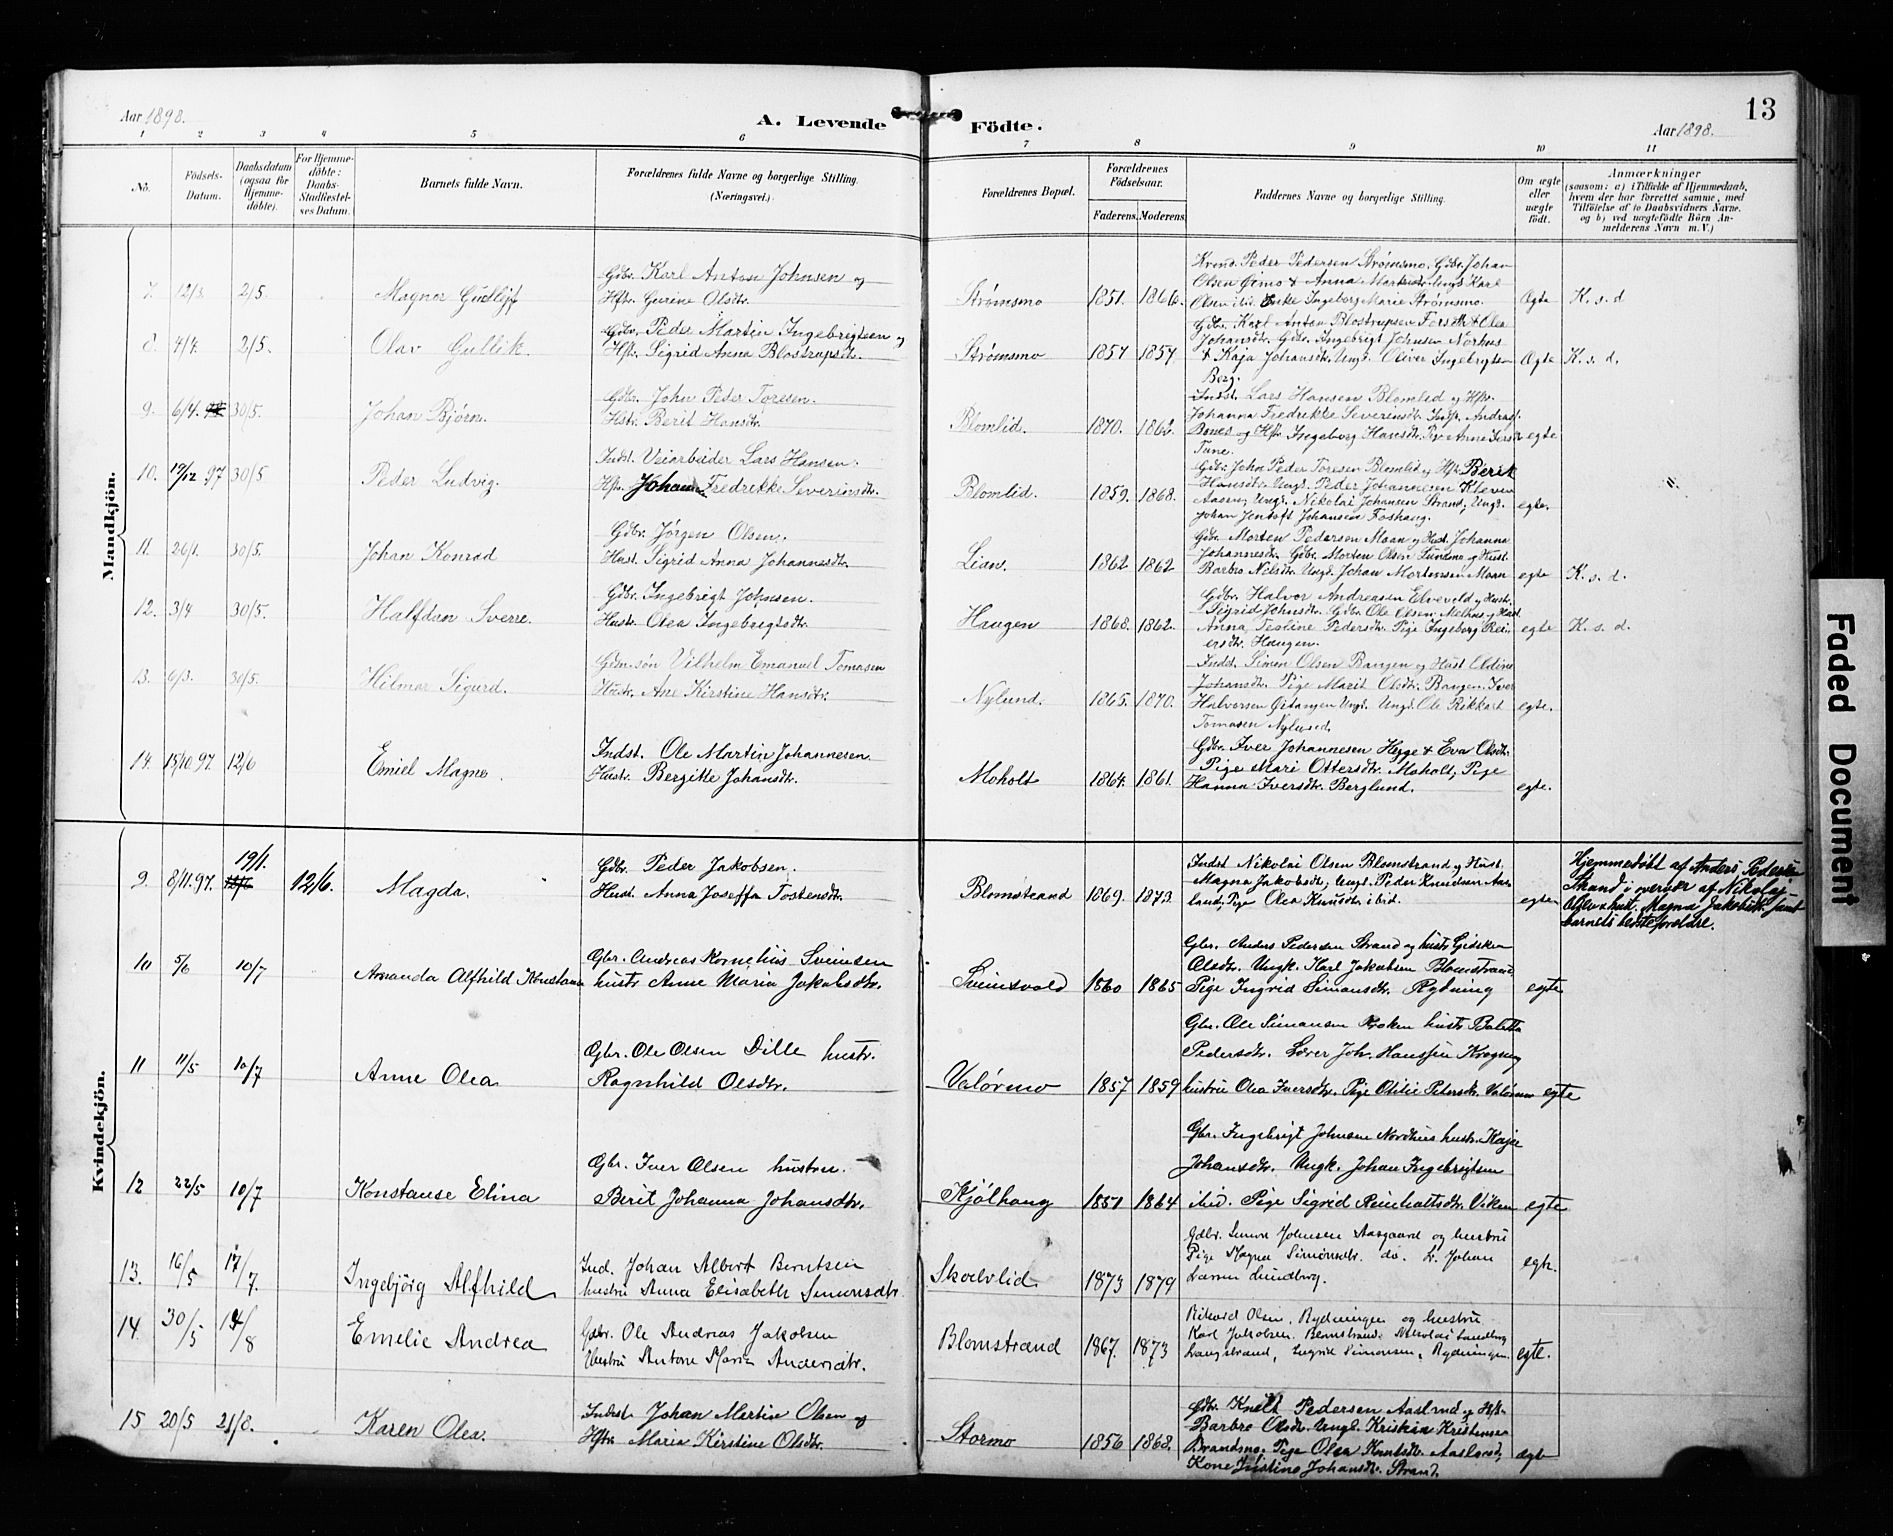 Aar 1898.
A. Levende Födte.
13
Aar 1898.
1 2 3 4 5 6 7 8 9 10 11
No.
Födsels-Datum.
Daabsdatum (ogsaa for Hjemme-döbte).
For Hjemme-döbte: Daabs-Stadfæstel-ses Datum.
Barnets fulde Navn.
Forældrenes fulde Navne og borgerlige Stilling. (Næringsvei.)
Forældrenes Bopæl.
Forældrenes Födselsaar.
Faderens. Moderens.
Faddernes Navne og borgerlige Stilling.
Om ægte eller uægte födt.
Anmærkninger
(saasom: a) i Tilfælde af Hjemmedaab,
hvem der har forrettet samme, med
Tilföielse af to Daabsvidners Navne,
og b) ved uægtefödte Börn An-
melderens Navn m. V.)
Mandkjön.
7. 12/3. 2/5. Magnor Gudleif
Gdbr. Karl Anton Johnsen og
Hstr. Gurine Olsdtr.
Strømsmo 1851. 1866.
Peder Pedersen Strømsmo. Gdbr. Johan
Olsen Ørmo & Anna Ungk. Karl
Olsen ibid. Enke Ingeborg Marie Strømsmo.
Ægte K. s. d
8. 4/4. 2/5. Olav Gullik.
Gdbr. Peder Martin Ingebrigtsen og
Hstr. Sigrid Anna Blostrupsdtr.
Strømsmo 1857 1857
Gdbr. Karl Anton Blostrupsen & Olea
Johansdtr. Gdbr. Ingebrigt Johnsen Norhus
& Kaja Johansdtr. Ungk. Oliver Ingebrigtsen
Berg.
Ægte K. s. d.
9. 6/4. 30/5. Johan Bjørn.
Gdbr. John Peder Toresen.
Hstr. Berit Hansdtr.
Blomlid. 1870. 1862.
Indst. Lars Hansen Blomlid og Hstr.
Johanna Fredrikke Severinsdtr. Indst. Andreas
Bones og Hstr. Ingeborg Hansdtr. Pige Anne
Tune.
egte
10. 19/12 97 30/5 Peder Ludvig.
Indst. Veiarbeider Lars Hansen.
Hstr. Johanna Fredrikke Severinsdtr.
Blomlid. 1859. 1868.
Gdbr. John Peder Toresen Blomlid og Hstr. Berit
Hansdtr. Ungk. Peder Johannesen Kleven
Ungk. Nikolai Johansen Strand, Ungk.
Johan Jentoft Johansen Foshaug.
egte.
11. 26/1. 30/5. Johan Konrad
Gdbr. Jørgen Olsen.
Hust. Sigrid Anna Johannesdtr.
Lian. 1862 1862
Gdbr. Morten Pedersen Moan og Hust. Johanna
Johannesdtr. Gdbr. Morten Olsen Sundmo og Hust.
Barbro Nilsdtr. Ungk. Johan Mortensen Moan
egte K. s. d.
12. 3/4 30/5. Halfdan Sverre.
Gdbr. Ingebrigt Johnsen.
Hust. Olea Ingebrigtsdtr.
Haugen 1868. 1862.
Gdbr. Halvor Andreasen Elveveld og Hustr.
Sigrid Johnsdtr. Gdbr. Ole Olsen Melhus og Hust.
Anna Tesline Pedersdtr. Pige Ingeborg Rei-
ersdtr. Haugen.
egte K. s. d.
13. 6/3. 30/5. Hilmar Sigurd.
Gdm.søn Vilhelm Emanuel Tomasen
Hustr. Ane Kirstine Hansdtr.
Nylund. 1865. 1870.
Indst. Simon Olsen Bangen og Hust. Oldine
Johansdtr. Pige Marit Olsdtr. Bangen. Iver
Halvorsen Ungk. Ungk. Ole Rikkart
Tomasen Nylund.
egte.
14. 15/10 97. 12/6 Emiel Magne.
Indst. Ole Martin Johannesen
Hustr. Bergitte Johansdtr.
Moholt 1864. 1861.
Gdbr. Iver Johannesen Hegge & Eva Olsdtr.
Pige Mari Ottersdtr. Moholt, Pige
Hanna Iversdtr. Berglund.
egte.
Kvindekjön.
9. 8/11.97. 19/1. 12/6. Magda.
Gdbr. Peder Jakobsen.
Hust. Anna Joseffa Tostensdtr.
Blomstrand 1869. 1873.
Indst Nikolai Olsen Blomstrand og Hust.
Magna Jakobsdtr, Ungk. Peder Knudsen Aas-
lund, Pige Olea Knusdtr. ibid.
egte
Hjemmedøbt af Anders Pedersen
Strand i overvær af Nikolaj
Olsen & hust. Magna Jakobsdtr. samt
barnets bedsteforeldre.
10 5/6 10/7 Amanda Alfhild Konstanse
Gbr. Andreas Kornelius Sveinsen
hustr Anne Maria Jakobsdtr.
Sveinsvold 1860 1865
Gbr. Anders Pedersen Strand og hustr Gidsken
Olsdtr. Ungk. Karl Jakobsen Blomstrand
Pige Ingrid Simonsdtr. Rydning
egte
11 11/5 10/7 Anne Olea
Gbr. Ole Olsen Dille hustr.
Ragnhild Olsdtr.
Valørmo 1857 1859
Gbr. Ole Simonsen Kroken hustr Baletta
Pedersdtr. Lærer Joh. Hanssen Krogsng
hustru Olea Iversdtr. Pige Otilie Petersdtr. Valørmo
egte
12 22/5 10/7 Konstanse Elina
Gbr. Iver Olsen hustru
Berit Johanna Johansdtr.
Kjølhaug 1851 1864
Gbr. Ingebrigt Johnsen Nordhus hustr. Kaja
Johansdtr. Ungk. Johan Ingebrigtsen
ibid. Pige Sigrid Reinholtsdtr. Viken
egte
13. 16/5 17/7 Ingebjörg Alfhild
Ind. Johan Albert Berntsen
hustru Anna Elisabeth Simonsdtr
Skoelvlid 1873 1879
Gdbr. Simon Johnsen Aasgaard og hustru
Pige Magna Simonsdtr. do. L. Johan
Larsen Lundberg.
egte.
14. 30/5 14/8 Emelie Andrea
Gdbr. Ole Andreas Jakobsen
Hustru Antone Maria Andersdtr.
Blomstrand 1867. 1873
Rikard Olsen, Rydningen og hustru
Karl Jakobsen, Blomstrand. Nikolai Lundberg
Langstrand, Ingrid Simonsen, Rydningen.
egte.
15 20/5 21/8. Karen Olea.
Indst. Johan Martin Olsen og
Hstr. Maria Kirstine Olsdtr.
Stormo 1856 1868.
Gdbr. Knut Pedersen Aaslund og Hstr.
Barbro Olsdtr. Ungk. Kristian Kristensen
Brandsmo. Pige Olea Knutsdtr. Aaslund,
Kone Justine Johansdtr. Strand.
egte
Faded Document